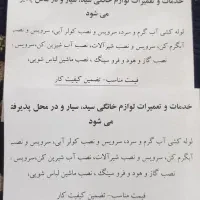 خدمات و تعمیرات لوازم خانگی سید، سیار و در محل پذیرفته
می شود
لوله کشی آب گرم و سرد، سرویس و نصب کولر آبی، سرویس و نصب
آبگرم کن، سرویس و نصب شیرآلات، نصب آب شیرین کن، سرویس و
نصب گاز و هود و فرو سینگ ، نصب ماشین لباس شویی،
قیمت مناسب- تضمین کیفیت کار
خدمات و تعمیرات لوازم خانگی سید، سیار و در محل پذیرفته
می شود
لوله کشی آب گرم و سرد، سرویس و نصب کولر آبی، سرویس و نصب
آبگرم کن، سرویس و نصب شیرآلات، نصب آب شیرین کن، سرویس و
نصب گاز و هود و فرو سینگ ، نصب ماشین لباس شویی،
قیمت مناسب- تضمین کیفیت کار